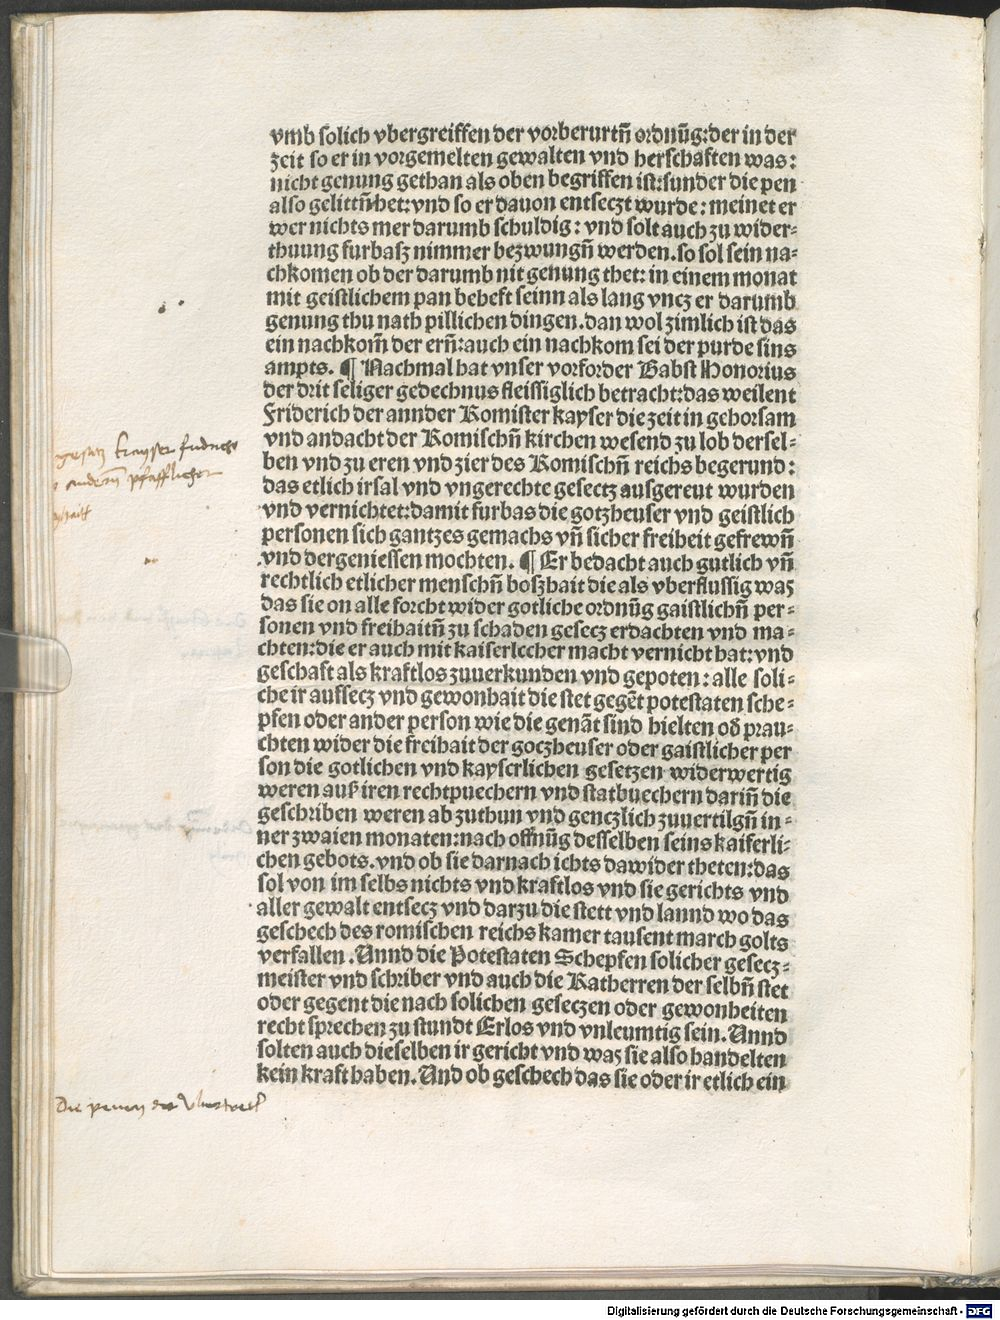 vmb solich vbergreiffen der vorberurtñ ordnũg: der in der
zeit so er in vorgemelten gewalten vnd herschaften was:
nicht genung gethan als oben begriffen ist: sunder die pen
also gelittñ het: vnd so er dauon entseczt wurde: meinet er
wer nichts mer darumb schuldig: vnd solt auch zu wider-
thuung furbasz nimmer bezwungñ werden. so sol sein na-
chkomen ob der darumb nit genung thet: in einem monat
mit geistlichem pan beheft seinn als lang vncz er darumb
genung thu nath pillichen dingen. dan wol zimlich ist das
ein nachkom̃ der ern̄: auch ein nachkom sei der purde sins
ampts. ¶ Nachmal hat vnser vorforder Babst Honorius
der drit seliger gedechnus fleissiglich betracht: das weilent
Friderich der annder Romister kayser die zeit in gehorsam
vnd andacht der Romischñ kirchen wesend zu lob dersel-
ben vnd zu eren vnd zier des Romischñ reichs begerund:
das etlich irsal vnd vngerechte gesectz ausgereut wurden
vnd vernichtet: damit furbas die gotzheuser vnd geistlich
personen sich gantzes gemachs vñ sicher freiheit gefrewñ
vnd dergeniessen mochten. ¶ Er bedacht auch gutlich vñ
rechtlich etlicher menschñ boszhait die als vberflussig waz
das sie on alle forcht wider gotliche ordnũg gaistlichñ per-
sonen vnd freihaitñ zu schaden gesecz erdachten vnd ma-
chten: die er auch mit kaiserlccher macht vernicht hat: vnd
geschaft als kraftlos zuuerkunden vnd gepoten: alle soli-
che ir aufsecz vnd gewonhait die stet gegẽt potestaten sche-
pfen oder ander person wie die genãt sind hielten oð prau-
chten wider die freihait der goczheuser oder gaistlicher per
son die gotlichen vnd kayserlichen gesetzen widerwertig
weren auß iren rechtpuechern vnd statbuechern darin̄ die
geschriben weren ab zuthun vnd genczlich zuuertilgñ in-
ner zwaien monaten: nach offnũg desselben seins kaiserli-
chen gebots. vnd ob sie darnach ichts dawider theten: das
sol von im selbs nichts vnd kraftlos vnd sie gerichts vnd
aller gewalt entsecz vnd darzu die stett vnd lannd wo das
geschech des romischen reichs kamer tausent march golts
verfallen. Unnd die Potestaten Schepfen solicher gesecz-
meister vnd schriber vnd auch die Ratherren der selbñ stet
oder gegent die nach solichen geseczen oder gewonheiten
recht sprechen zu stundt Erlos vnd vnleumtig sein. Unnd
solten auch dieselben ir gericht vnd waz sie also handelten
kein kraft haben. Und ob geschech das sie oder ir etlich ein
andern pfafflicher
Die penen der
Digitalisierung gefördert durch die Deutsche Forschungsgemeinschaft - DFG